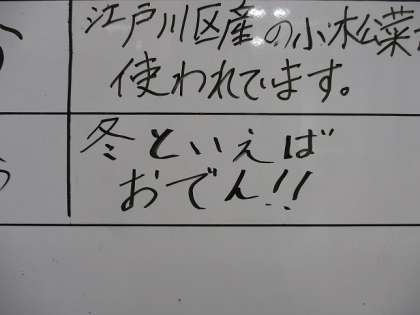 江戸川区産の小松菜
使われています。
冬といえば
おでん!!